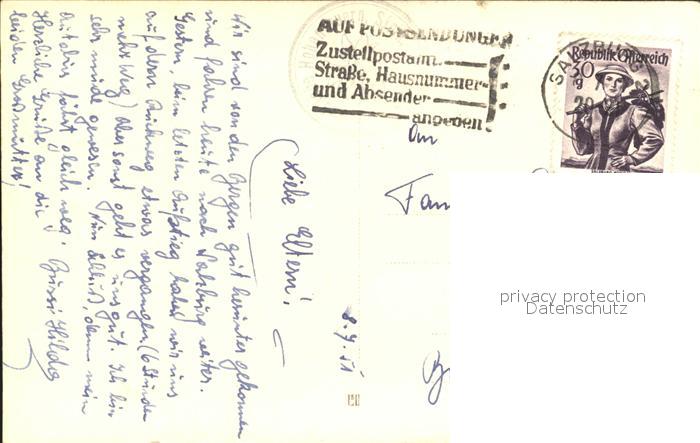 AUF POSTSENDUNGEN
Zustellpostamt
Straße, Hausnummer
und Absender
angeben!
Republik Österreich
30
g
An
Fam
privacy protection
Datenschutz
8.9.51
Liebe Eltern!
Wir sind von den Bergen gut herunter gekommen
und fahren heute nach Salzburg weiter.
Gestern, beim letzten Aufstieg haben wir uns
auf dem Rückweg etwas vergangen, (6 Stunden
mehr Weg) aber sonst geht es uns gut. Ich bin
sehr müde gewesen. Nun Schluß, denn mein
Autobus fährt gleich weg. Bussi Hilda
Herzliche Grüße an die
beiden Großmütter!